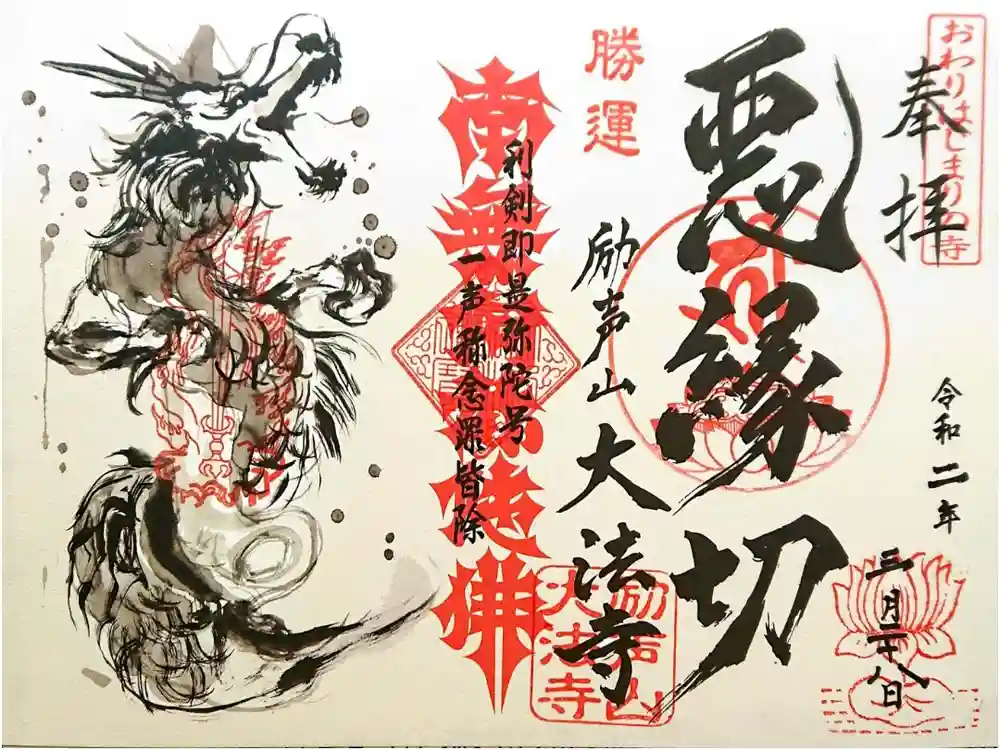 おわりはじまりの寺
奉拝
令和二年
三月二十八日
悪縁切
勝運
励声山
大法寺
励声山
大法寺
利剣即是弥陀号
一声称念罪皆除
南無阿弥陀佛